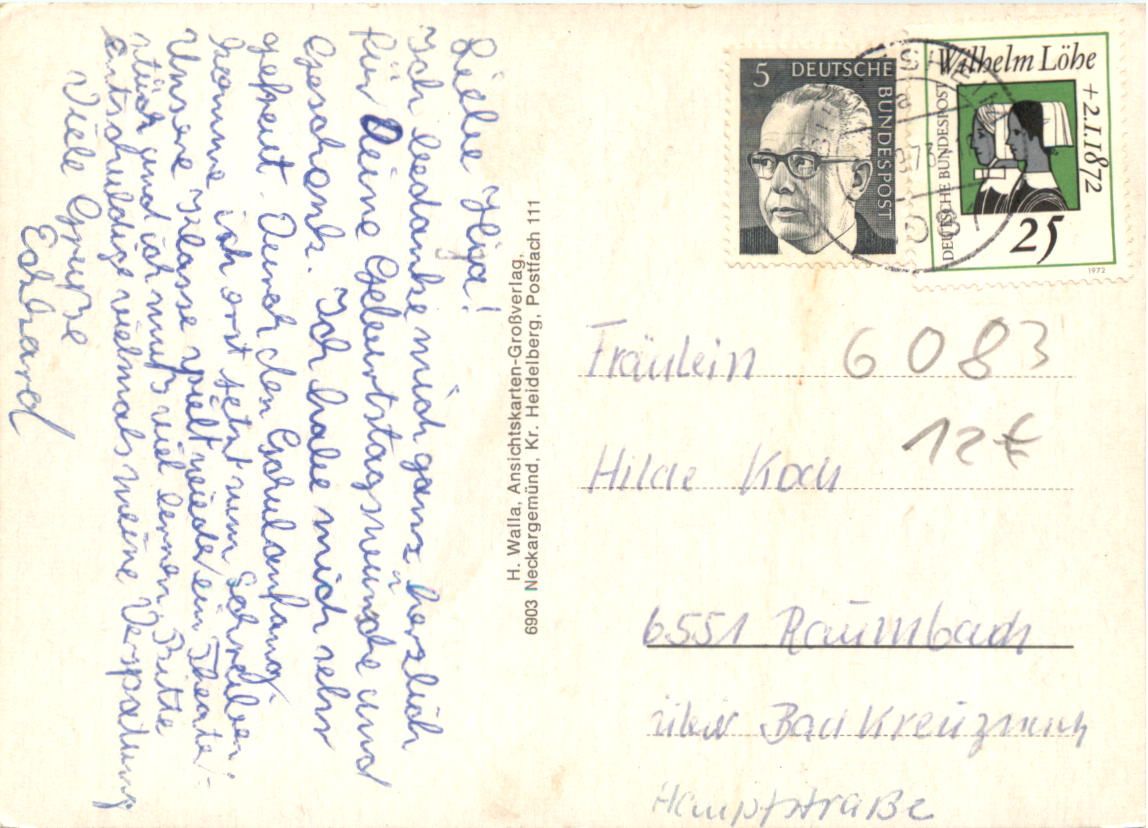 Liebe Helga!
Ich bedanke mich ganz herzlich
für Deine Geburtstagswünsche und
Geschenk. Ich habe mich sehr
gefreut. Durch den Schulanfang
komme ich erst jetzt zum Schreiben.
Unsere Klasse spielt wieder ein Theater-
stück und ich muß viel lernen. Bitte
entschuldige vielmals meine Verspätung
Viele Grüße
Eckhard
H. Walla, Ansichtskarten-Großverlag,
6903 Neckargemünd, Kr. Heidelberg, Postfach 111
5 DEUTSCHE
BUNDESPOST
Wilhelm Löhe
+2.1.1872
DEUTSCHE BUNDESPOST
25
1972
Fräulein
6083
Hilde Koch
12€
6551 Raumbach
über Bad Kreuznach
Hauptstraße